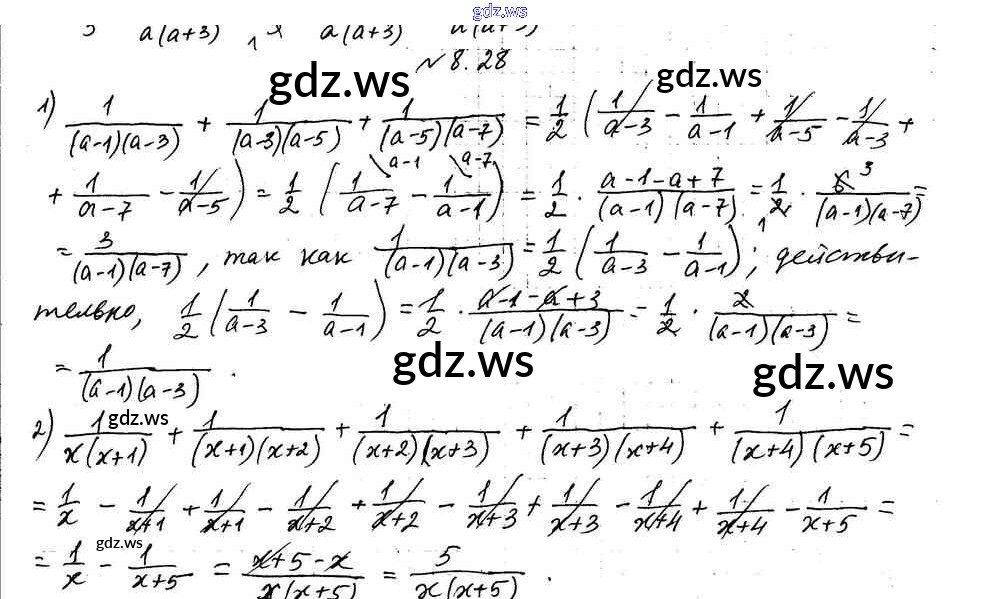 gdz.ws
5 a(a+3) 1 a(a+3) a(a+3)
№ 8.28
gdz.ws gdz.ws
1) 1/((a-1)(a-3)) + 1/((a-3)(a-5)) + 1/((a-5)(a-7)) = 1/2 (1/(a-3) - 1/(a-1) + 1/(a-5) - 1/(a-3) +
a-1 a-7
+ 1/(a-7) - 1/(a-5)) = 1/2 (1/(a-7) - 1/(a-1)) = 1/2 · (a-1-a+7)/((a-1)(a-7)) = 1/2 · 6 3/((a-1)(a-7)) =
= 3/((a-1)(a-7)), так как 1/((a-1)(a-3)) = 1/2 (1/(a-3) - 1/(a-1)); действи-
тельно, 1/2 (1/(a-3) - 1/(a-1)) = 1/2 · (a-1-a+3)/((a-1)(a-3)) = 1/2 · 2/((a-1)(a-3)) =
= 1/((a-1)(a-3)).
gdz.ws gdz.ws
gdz.ws
2) 1/(x(x+1)) + 1/((x+1)(x+2)) + 1/((x+2)(x+3)) + 1/((x+3)(x+4)) + 1/((x+4)(x+5)) =
= 1/x - 1/(x+1) + 1/(x+1) - 1/(x+2) + 1/(x+2) - 1/(x+3) + 1/(x+3) - 1/(x+4) + 1/(x+4) - 1/(x+5) =
gdz.ws
= 1/x - 1/(x+5) = (x+5-x)/(x(x+5)) = 5/(x(x+5)).